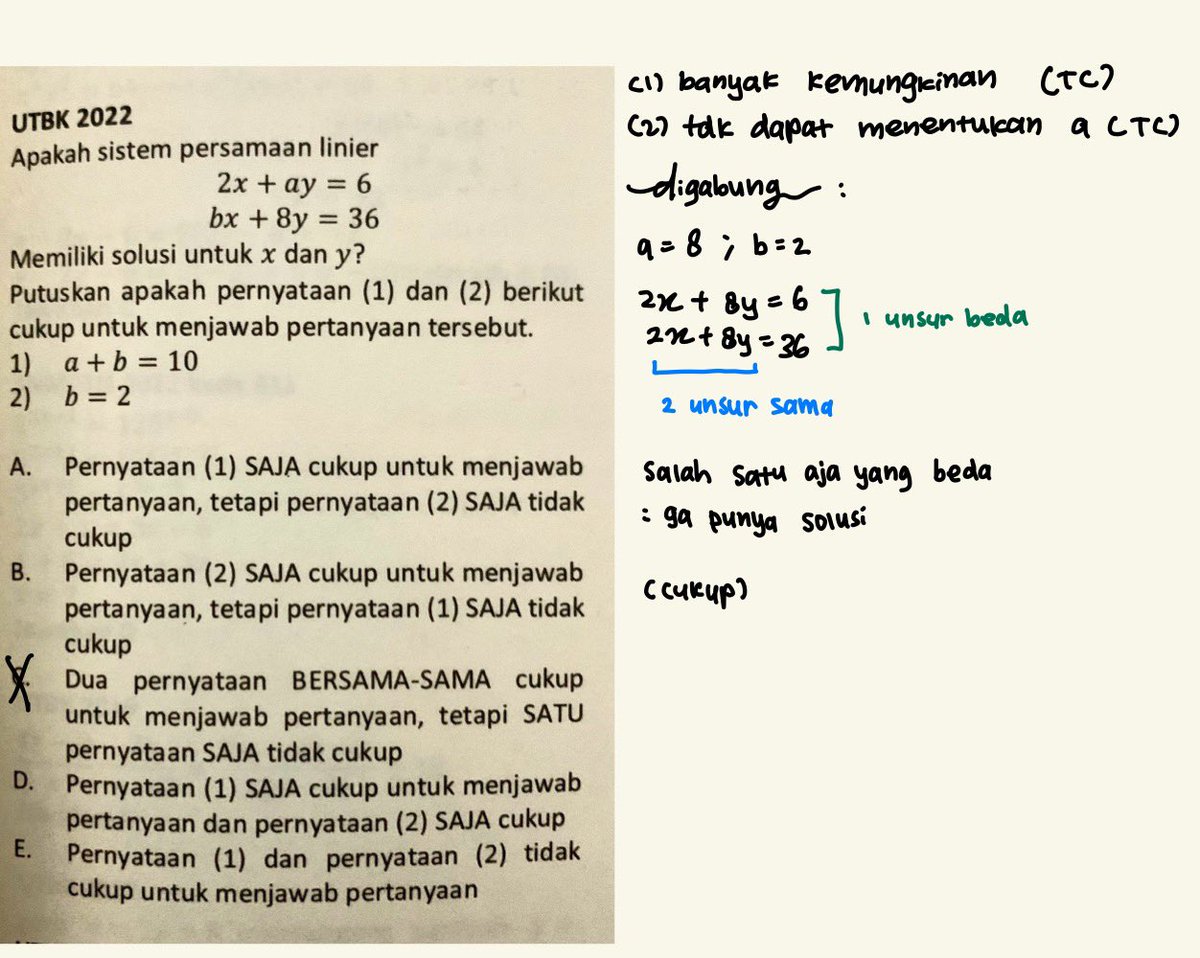 UTBK 2022
Apakah sistem persamaan linier
2x + ay = 6
bx + 8y = 36
Memiliki solusi untuk x dan y?
Putuskan apakah pernyataan (1) dan (2) berikut
cukup untuk menjawab pertanyaan tersebut.
1) a + b = 10
2) b = 2
A. Pernyataan (1) SAJA cukup untuk menjawab
pertanyaan, tetapi pernyataan (2) SAJA tidak
cukup
B. Pernyataan (2) SAJA cukup untuk menjawab
pertanyaan, tetapi pernyataan (1) SAJA tidak
cukup
Dua pernyataan BERSAMA-SAMA cukup
untuk menjawab pertanyaan, tetapi SATU
pernyataan SAJA tidak cukup
D. Pernyataan (1) SAJA cukup untuk menjawab
pertanyaan dan pernyataan (2) SAJA cukup
E. Pernyataan (1) dan pernyataan (2) tidak
cukup untuk menjawab pertanyaan
(1) banyak kemungkinan (TC)
(2) tdk dapat menentukan a (TC)
digabung :
a = 8 ; b = 2
2x + 8y = 6
2x + 8y = 36
1 unsur beda
2 unsur sama
salah satu aja yang beda
: ga punya solusi
(cukup)